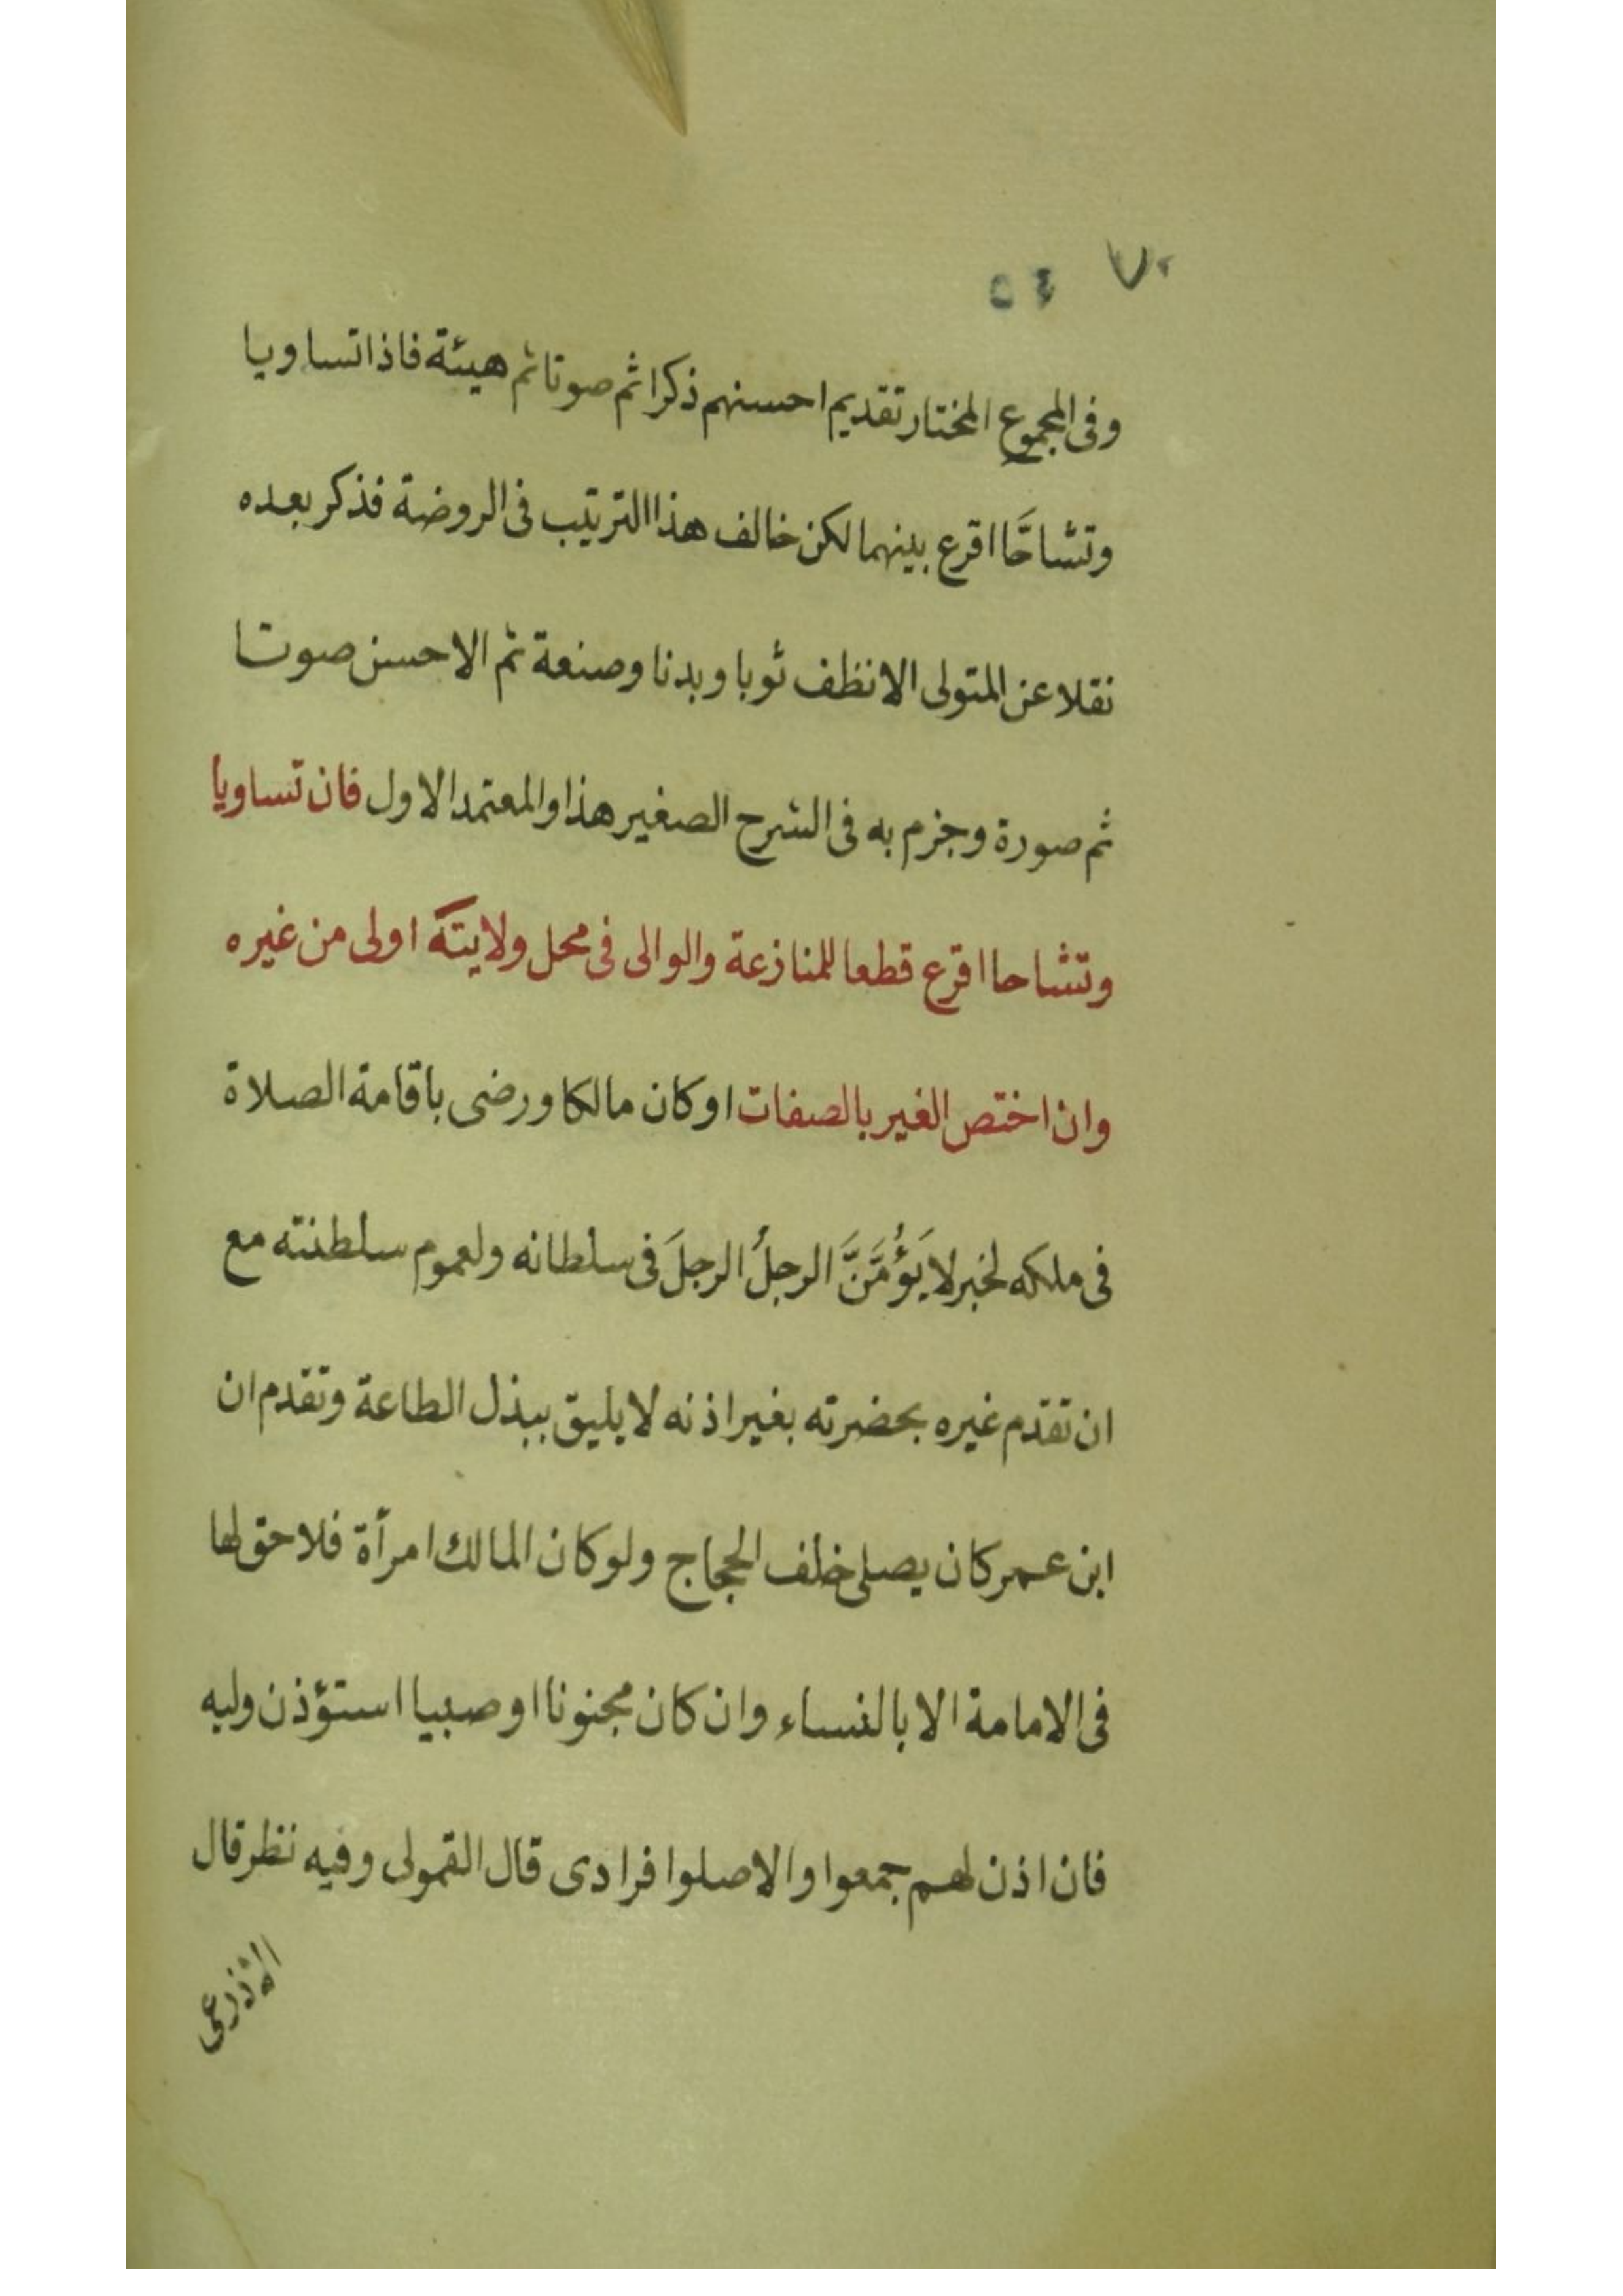 وفى المجموع المختار تقديم احسنهم ذكرا ثم صوتا ثم هيئة فاذا تساويا
وتشاحَّا اقرع بينهما لكن خالف هذا الترتيب فى الروضة فذكر بعده
نقلا عن المتولى الانظف ثوبا وبدنا وصنعة ثم الاحسن صوتا
ثم صورة وجزم به فى الشرح الصغير هذا والمعتمد الاول فان تساويا
وتشاحا اقرع قطعا للمنازعة والوالى فى محل ولايته اولى من غيره
وان اختص الغير بالصفات او كان مالكا ورضى باقامة الصلاة
فى ملكه لخبر لا يَؤُمَّنَّ الرجلُ الرجلَ فى سلطانه ولعموم سلطنته مع
ان تقدم غيره بحضرته بغير اذنه لا يليق ببذل الطاعة وتقدم ان
ابن عمر كان يصلى خلف الحجاج ولو كان المالك امرأة فلا حق لها
فى الامامة الا بالنساء وان كان مجنونا او صبيا استؤذن وليه
فان اذن لهم جمعوا والا صلوا فرادى قال القمولى وفيه نظر قال
الاذرعى